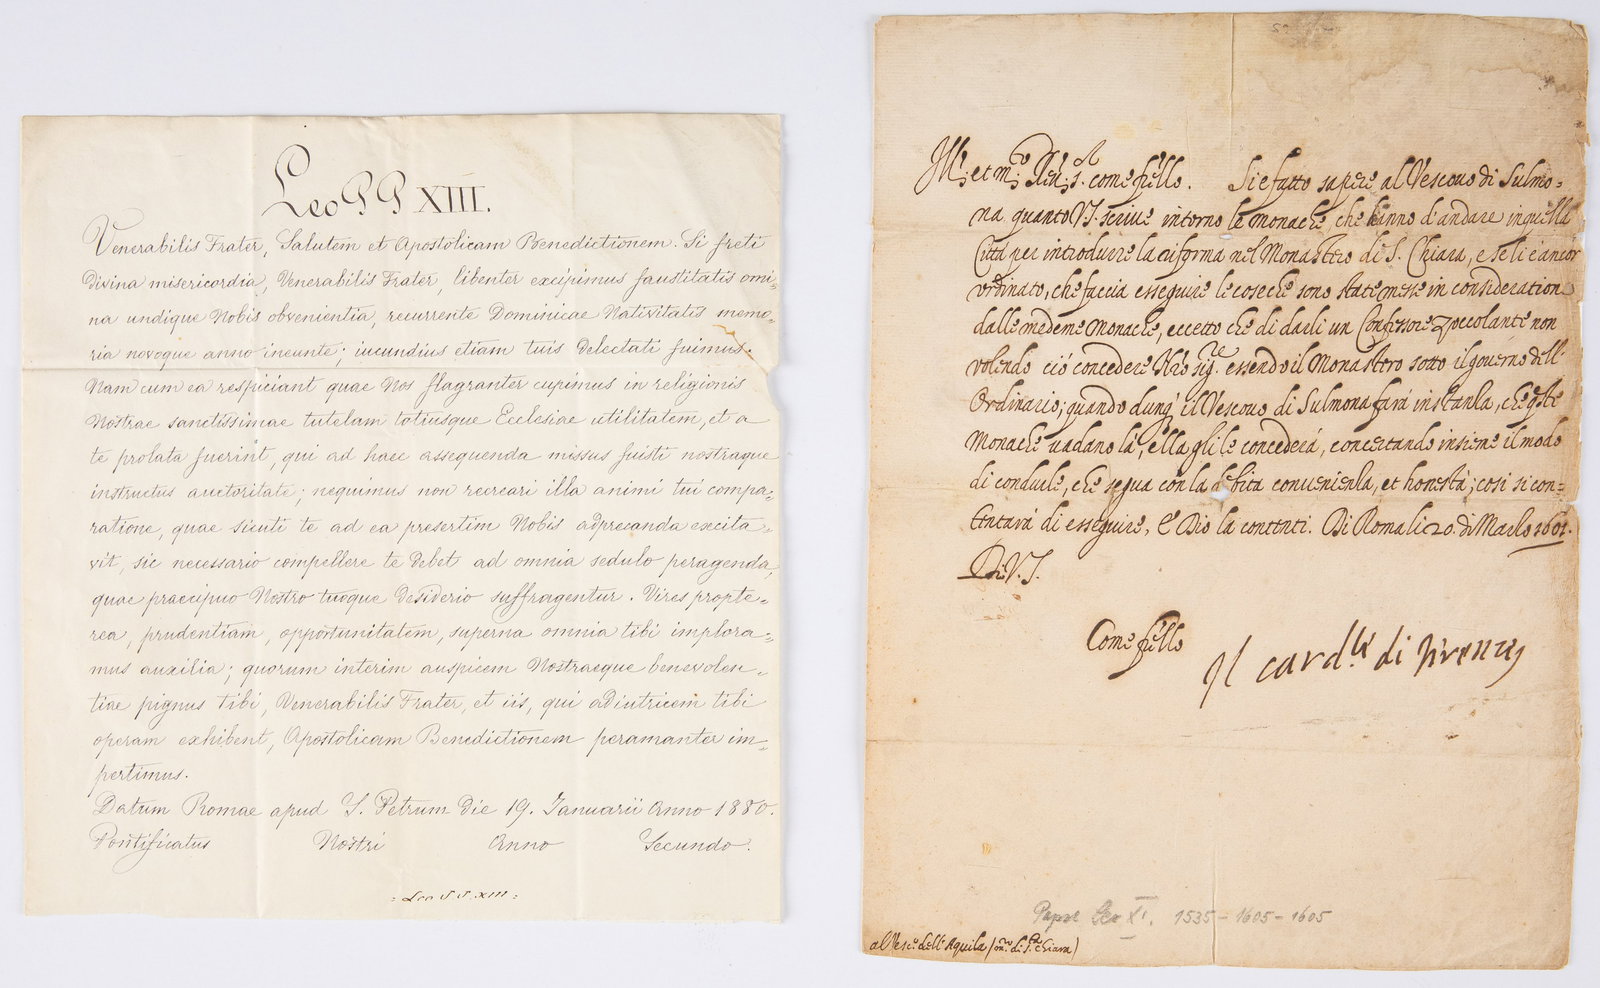 Leo PP XIII.
Venerabilis Frater, Salutem et Apostolicam Benedictionem. Si freti
Divina misericordia, Venerabilis Frater, libenter excipimus faustitatis omi=
na undique Nobis obvenientia, recurrente Dominicae Nativitatis memo=
ria novoque anno ineunte; iucundius etiam tuis delectati fuimus.
Nam cum ea respiciant quae Nos flagranter cupimus in religionis
Nostrae sanctissimae tutelam totiusque Ecclesiae utilitatem, et a
te prolata fuerint, qui ad haec assequenda missus fuisti nostraque
instructus auctoritate; nequimus non recreari illa animi tui compa=
ratione, quae sicuti te ad ea presertim Nobis adprecanda excita=
vit, sic necessario compellere te debet ad omnia sedulo peragenda,
quae praecipuo Nostro tuoque desiderio suffragentur. Vires propte=
rea, prudentiam, opportunitatem, superna omnia tibi implora=
mus auxilia; quorum interim auspicem Nostraeque benevolen=
tiae pignus tibi, Venerabilis Frater, et iis, qui adiutricem tibi
operam exhibent, Apostolicam Benedictionem peramanter im=
pertimus.
Datum Romae apud S. Petrum die 19. Ianuarii Anno 1880.
Pontificatus Nostri Anno Secundo.
= Leo P P. XIII =
Ill.e et m.to Rev. S.or come fr̃ello. Si è fatto sapere al Vescovo di Sulmo=
na quanto V.S. scrive intorno le monache, che hanno d'andare in quella
Città per introdurre la riforma nel Monastero di S. Chiara, e se li è ancor
ordinato, che faccia esseguire le cose che sono state messe in consideratione
dalle medeme Monache, eccetto che di darli un Confessore Zoccolante non
volendo ciò concedere N̄ro Sig.re essendo il Monastero sotto il governo dell'
Ordinario; quando dunq' il Vescovo di Sulmona farà instanza, che q̃ste
Monache vadano là, ella gli le concederà, concertando insieme il modo
di condurle, che segua con la debita convenienza, et honestà; così si con=
tentarà di esseguire, E Dio la contenti. Di Roma li 20. di Marzo 1601.
Di V.S.
Come fr̃ello
Il card.le di firenze
Papst Leo XI. 1535 - 1605 - 1605
al Vesc.o dell'Aquila (m.ro di S.ta Chiara)